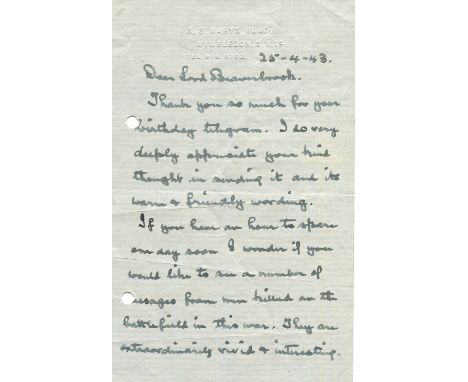 3, ST MARY'S ROAD,
WIMBLEDON, S.W.19.
25-4-43.
Dear Lord Beaverbrook.
Thank you so much for your
birthday telegram. I do very
deeply appreciate your kind
thought in sending it and its
warm & friendly wording.
If you have an hour to spare
one day soon I wonder if you
would like to see a number of
messages from men killed on the
battlefield in this war. They are
extraordinarily vivid & interesting.